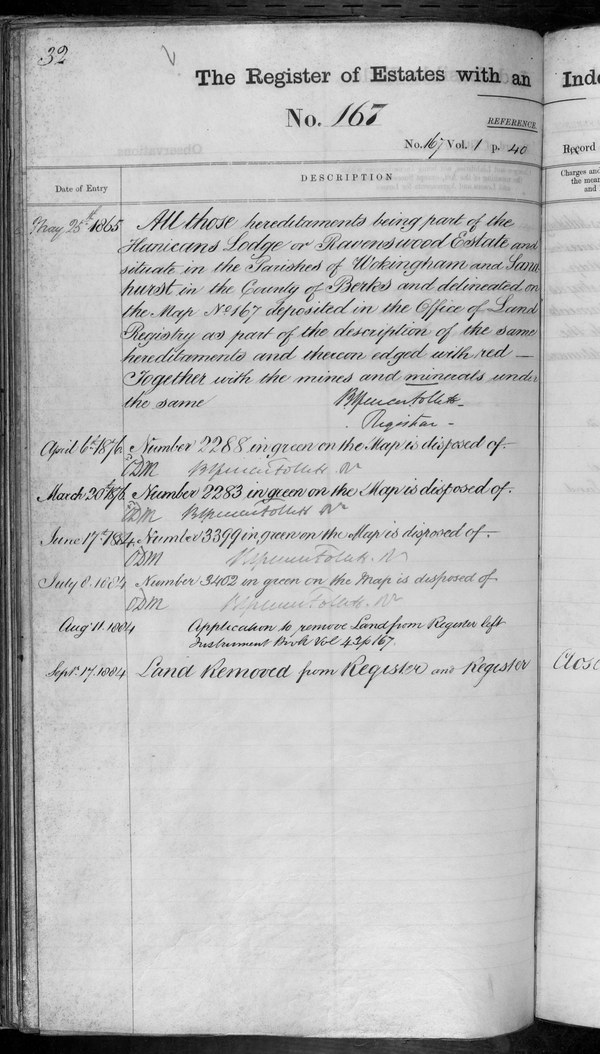 32
The Register of Estates with an
Inde
No. 167
REFERENCE.
No. 167 Vol. 1 p. 40
Record
Date of Entry
DESCRIPTION
Charges and
the mean
and
May 25th 1865
All those hereditaments being part of the
Hunicans Lodge or Ravenswood Estate and
situate in the Parishes of Wokingham and Sand
hurst in the County of Berks and delineated on
the Map No 167 deposited in the Office of Land
Registry as part of the description of the same
hereditaments and thereon edged with red —
Together with the mines and minerals under
the same
BSpencer Follett
Registrar -
April 6th 1876. Number 2288 in green on the Map is disposed of.
ODM BSpencer Follett Rr
March 20th 1878. Number 2283 in green on the Map is disposed of.
ODM BSpencer Follett Rr
June 17th 1884. Number 3399 in green on the Map is disposed of.
ODM BSpencer Follett. Rr
July 8. 1884 Number 3402 in green on the Map is disposed of
ODM BSpencer Follett. Rr
Augt 11. 1884 Application to remove Land from Register left
Instrument Book Vol 43 p 167.
Septr 17. 1884 Land Removed from Register and Register
Close